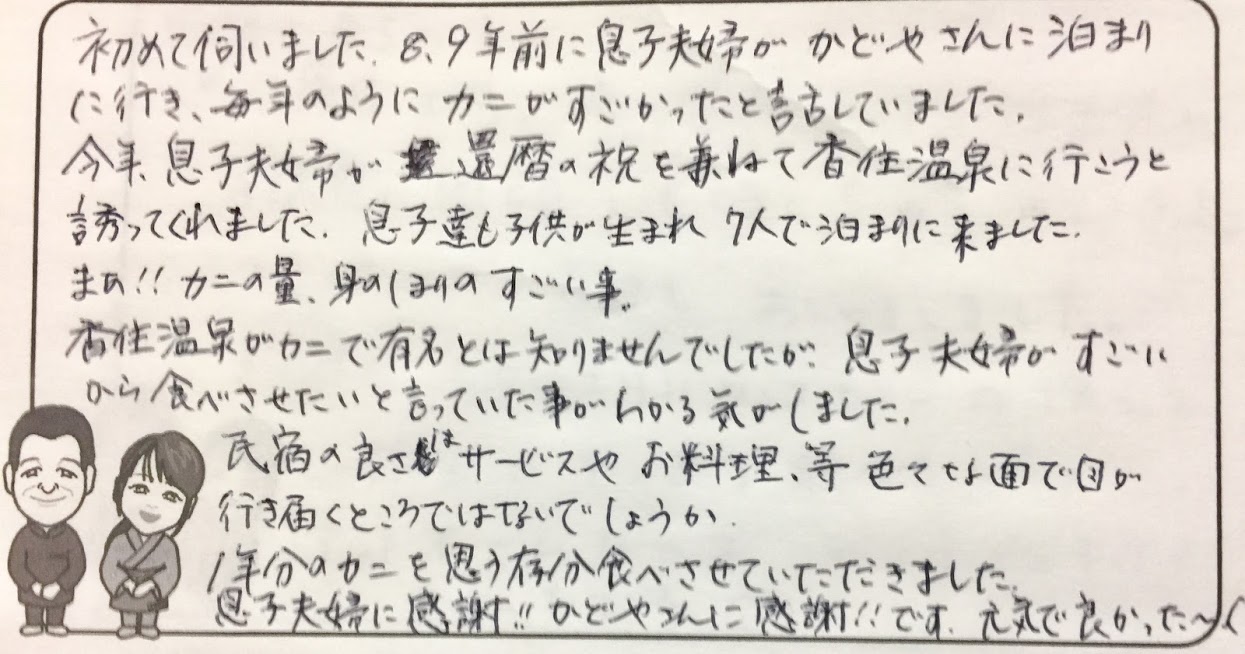 初めて伺いました。8、9年前に息子夫婦が かどやさんに泊まり
に行き、毎年のように カニがすごかったと話していました。
今年、息子夫婦が 還暦の祝を兼ねて香住温泉に行こうと
誘ってくれました。息子達も子供が生まれ 7人で泊まりに来ました。
まあ!! カニの量、身のしまりのすごい事。
香住温泉がカニで有名とは知りませんでしたが、息子夫婦が すごい
から食べさせたいと言っていた事がわかる気がしました。
民宿の良さは サービスや お料理、等 色々な面で目が
行き届くところではないでしょうか。
1年分のカニを思う存分食べさせていただきました。
息子夫婦に感謝!! かどやさんに感謝!!です。元気で良かった〜